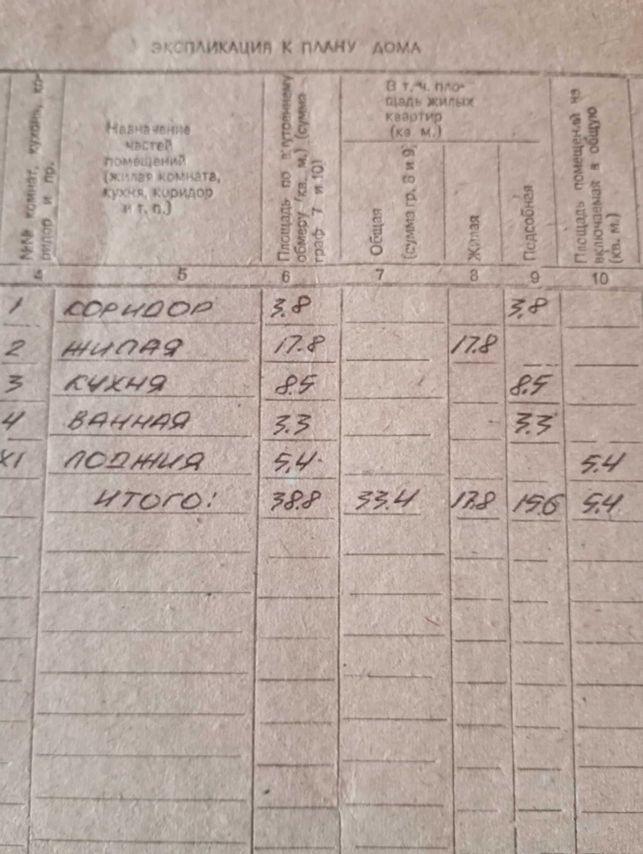 ЭКСПЛИКАЦИЯ К ПЛАНУ ДОМА
№№ комнат, кухонь, ко-
ридор и пр.
Назначение
частей
помещений
(жилая комната,
кухня, коридор
и т. п.)
Площадь по внутреннему
обмеру (кв. м.) (сумма
граф 7 и 10)
В т. ч. пло-
щадь жилых
квартир
(кв м.)
Общая
(сумма гр. 8 и 9)
Жилая
Подсобная
Площадь помещений не
включаемая в общую
(кв. м.)
4 5 6 7 8 9 10
1 КОРИДОР 3.8 3,8
2 ЖИЛАЯ 17.8 17.8
3 КУХНЯ 8.5 8.5
4 ВАННАЯ 3.3 3.3
XI ЛОДЖИЯ 5,4 5.4
ИТОГО: 38.8 33.4 17.8 15.6 5.4